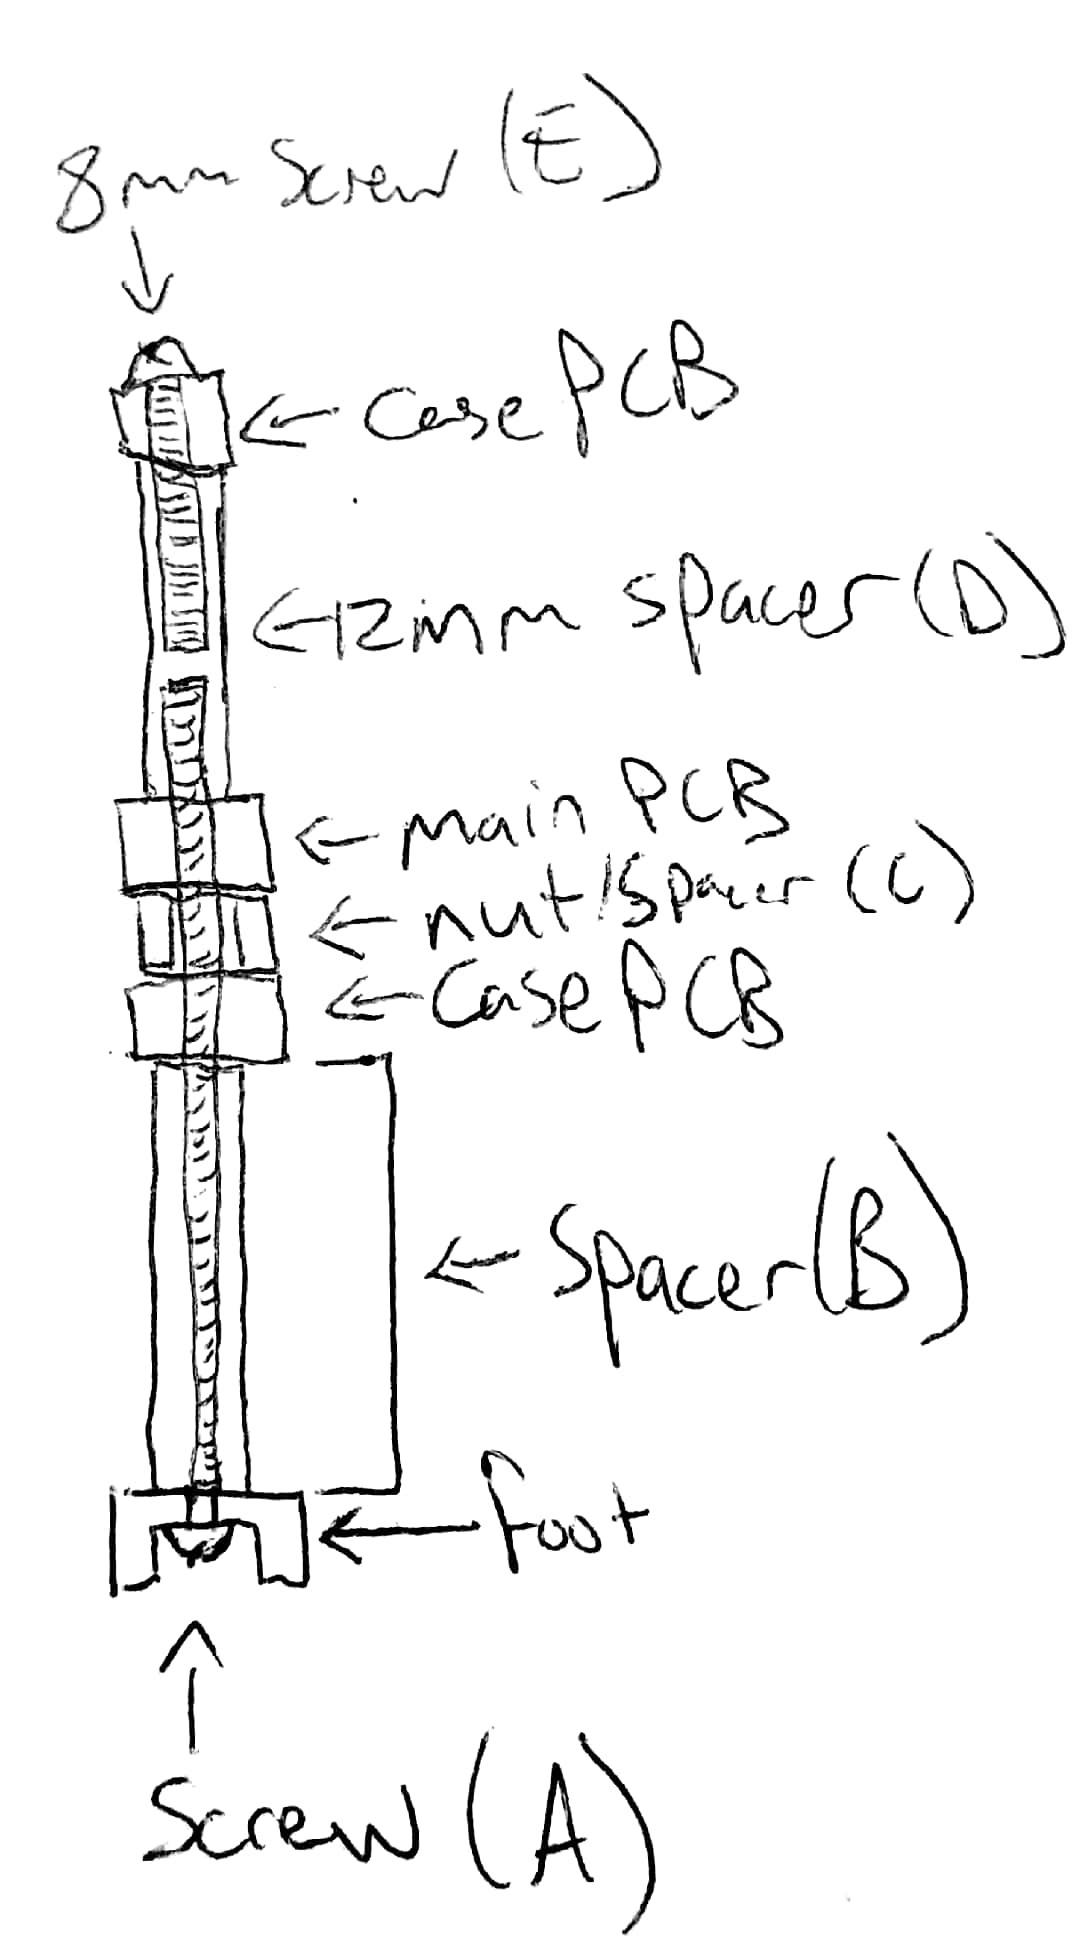 8mm Screw (E)
Case PCB
12mm spacer (D)
main PCB
nut/spacer (C)
Case PCB
Spacer (B)
foot
Screw (A)